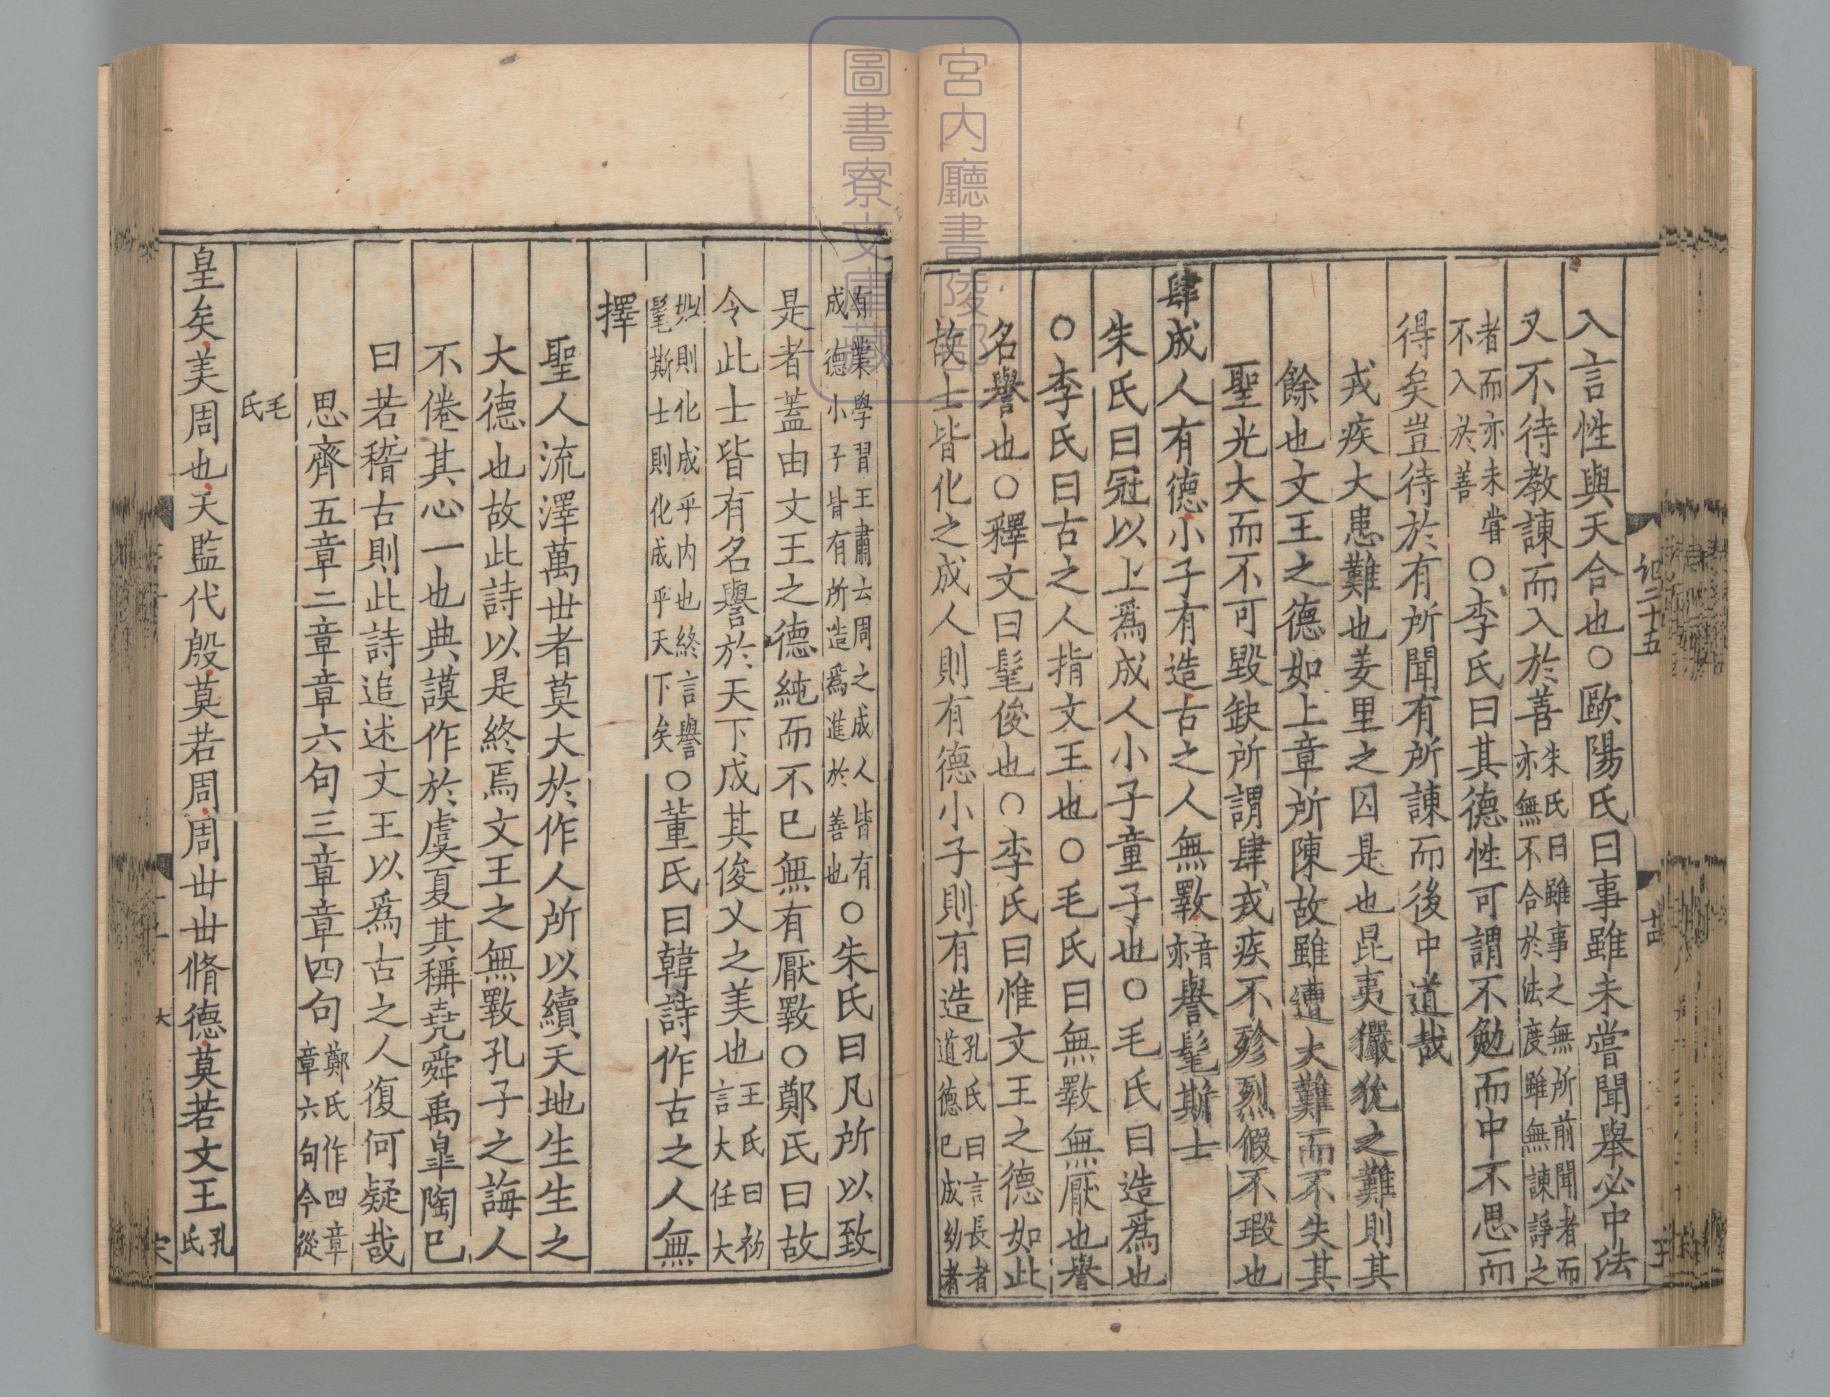 入言性與天合也○歐陽氏曰事雖未嘗聞舉必中法
又不待教諫而入於善朱氏曰雖事之無所前聞者而亦無不合於法度雖無諫諍之
者而亦未嘗不入於善○李氏曰其德性可謂不勉而中不思而
得矣豈待於有所聞有所諫而後中道哉
戎疾大患難也羑里之囚是也昆夷玁狁之難則其
餘也文王之德如上章所陳故雖遭大難而不失其
聖光大而不可毀缺所謂肆戎疾不殄烈假不瑕也
肆成人有德小子有造古之人無斁音亦譽髦斯士
朱氏曰冠以上爲成人小子童子也○毛氏曰造爲也
○李氏曰古之人指文王也○毛氏曰無斁無厭也譽
名譽也○釋文曰髦俊也○李氏曰惟文王之德如此
故士皆化之成人則有德小子則有造孔氏曰言長者道德已成幼者
有業學習王肅云周之成人皆有成德小子皆有所造爲進於善也○朱氏曰凡所以致
是者蓋由文王之德純而不已無有厭斁○鄭氏曰故
令此士皆有名譽於天下成其俊乂之美也王氏曰初言大任大
姒則化成乎内也終言譽髦斯士則化成乎天下矣○董氏曰韓詩作古之人無
擇
聖人流澤萬世者莫大於作人所以續天地生生之
大德也故此詩以是終焉文王之無斁孔子之誨人
不倦其心一也典謨作於虞夏其稱堯舜禹皐陶已
曰若稽古則此詩追述文王以爲古之人復何疑哉
思齊五章二章章六句三章章四句鄭氏作四章章六句今從
毛氏
皇矣美周也天監代殷莫若周周丗丗脩德莫若文王孔氏
記二十五
宮内廳書陵部
圖書寮文庫藏